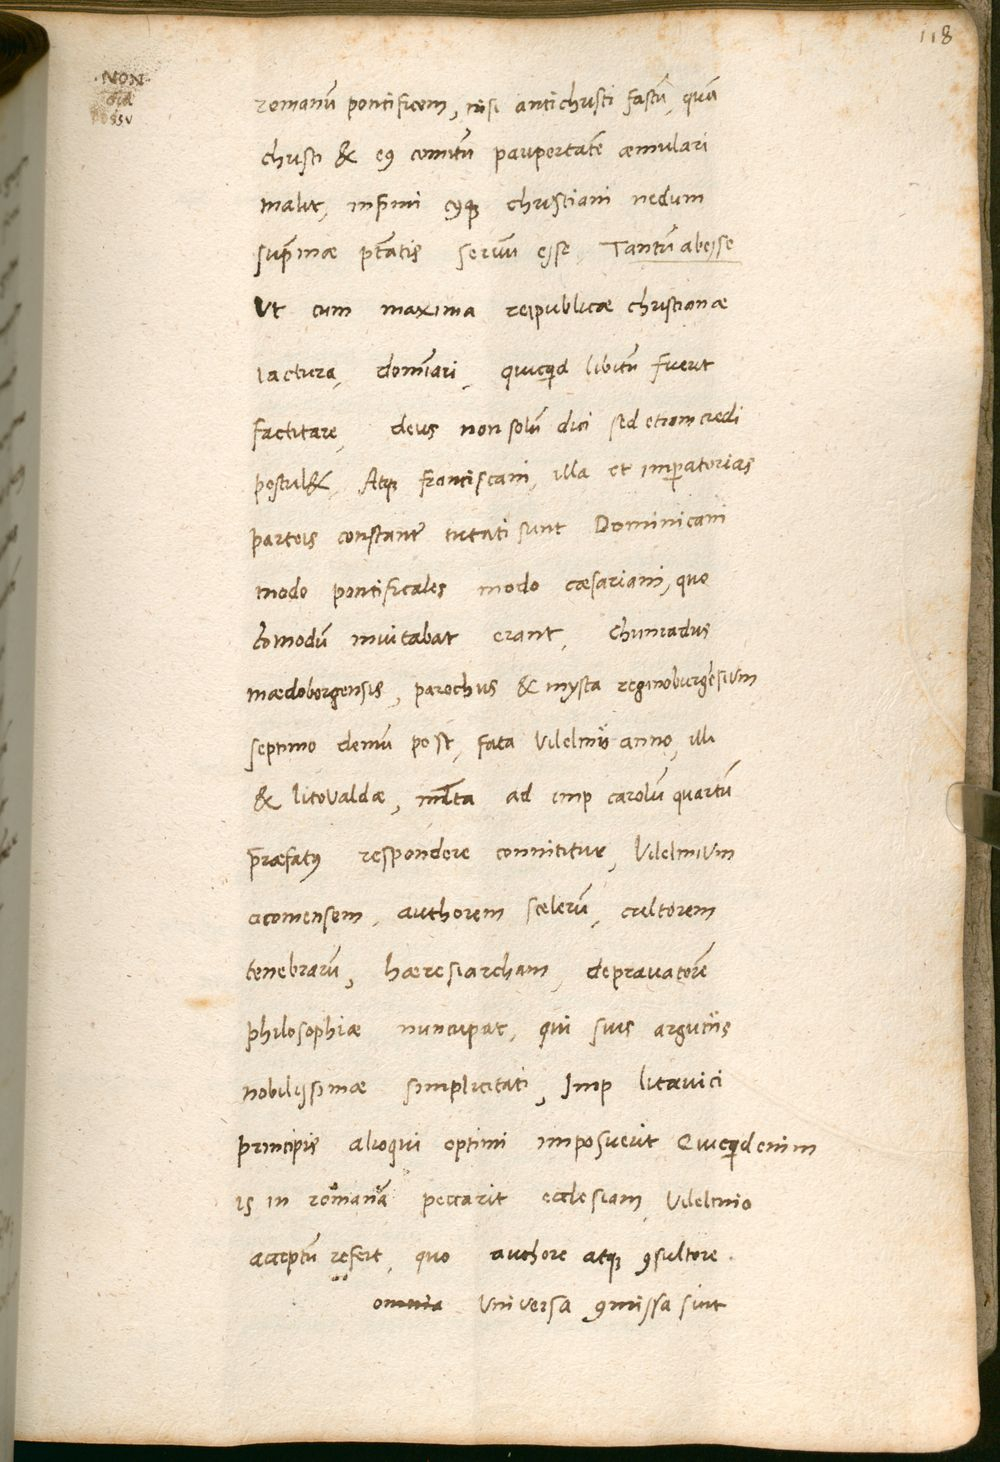 118
NON
romanū pontificem, nisi antichristi fastū, quā
christi & eꝰ comitū paupertatē æmulari
malit, infimi cꝰqꝫ christiani nedum
sup̄mæ ptātis seruū esse, Tantū abesse
Vt cum maxima reipublicæ christianæ
iactura, domīari, quicquid libitū fuerit
factitare, deus non solū dici sed etiam credi
postul&, Atqꝫ franciscani, illa et imperatorias
parteis constantē tutati sunt Dominicani
modo pontificales modo cæsariani, quo
cōmodū inuitabat erant, Chunradus
mædoborgensis, parochus & mysta reginoburgēsium
septimo demū post, fata Vilelmi anno, illi
& litovaldæ, multa ad imp carolū quartū
præfatꝰ respondere connititur, Vilelmum
acomensem, authorem scelerū, cultorem
tenebrarū, hæresiarcham, depravatorē
philosophiæ nuncupat, qui suis argutiis
nobilissimæ simplicitati, Imp litavici
principis alioqui optimi imposuerit Quicquid enim
is in romanā peccarit ecclesiam, Vilelmio
acceptū refert, quo authore atqꝫ ꝯsultore
omnia Universa ꝯmissa sint